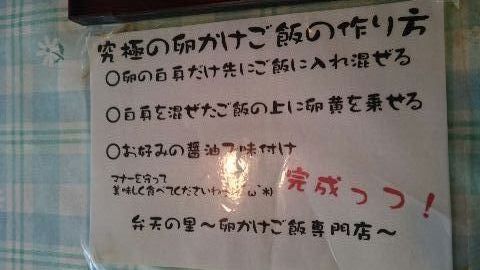 究極の卵かけご飯の作り方
○卵の白身だけ先にご飯に入れ混ぜる
○白身を混ぜたご飯の上に卵黄を乗せる
○お好みの醤油で味付け
マナーを守って
美味しく食べてくださいわ
完成っつ!
弁天の里～卵かけご飯専門店～